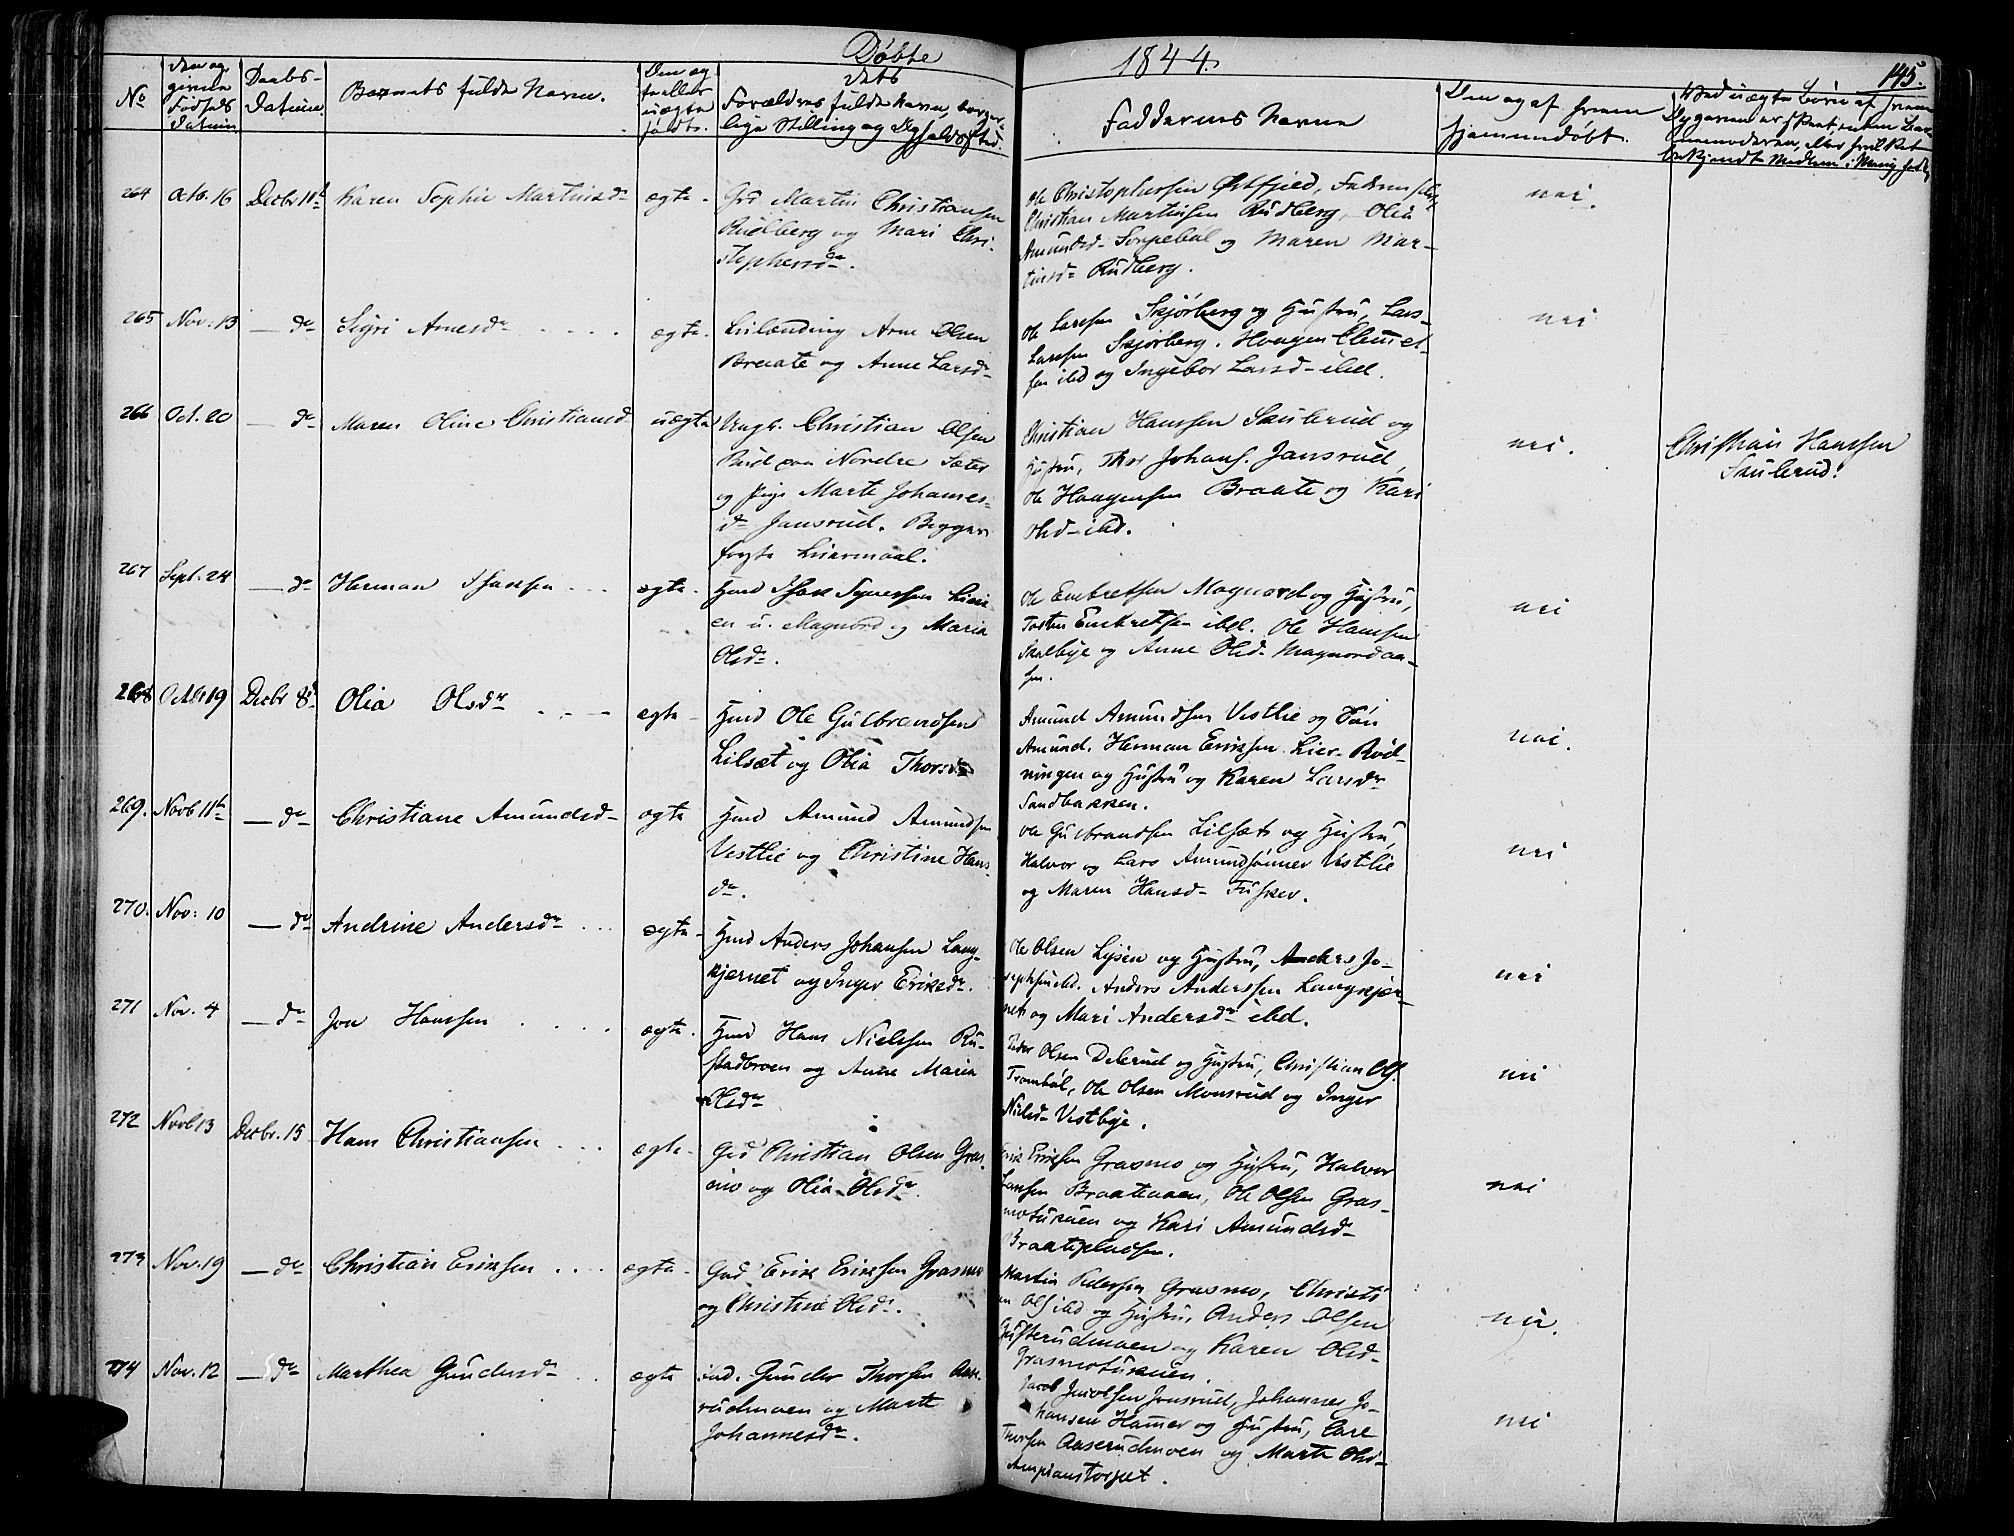 Døbte 1844. 145.
No
Den an-
givne
Fødsels
Datum
Daabs-
Datum.
Barnets fulde Navn.
Om æg
te eller
uægte
født.
dets
Forældres fulde Navn, borger-
lige Stilling og Opholdssted.
Faddernes Navne
Om og af hvem
hjemmedøbt.
264 Octb. 16 Decbr 11te Karen Sophie Martinsdr ægte - Grd Martin Christiansen
Rudberg og Mari Chri-
stophersdr.
Ole Christophersen Østfjeld,
Christian Martinsen Rudberg, Olia
Amundsd- og Maren Mar-
tinsd- Rudberg.
nei.
265 Nov: 13 — do Sigri Arnesdr ægte. Arne Olsen
Braate og Anne Larsdr
Ole Larsen Skjørberg og Hustru, Lars-
Larsen Skjørberg. Haagen Clemet-
sen ibd og Ingebor Larsd- ibd.
nei
266 Oct. 20 — do Maren Oline Christiansd uægte Ungk. Christian Olsen
Rud paa Nordre Sæter
og Pige Marte Johannes-
dr Jansrud. Begges
første Leiermaal.
Christian Hanssen Sauberud og
Hustru, Thor Johans. Jansrud,
Ole Haagensen Braate og Kari
Olsd- ibd.
nei.
Christian Hanssen
Sauberud.
267 Sept. 24 — do Herman Isaksen ægte. Hmd Isak
en u. Magnord og Maria
Olsdr.
Ole Embretsen Magnord og Hustru,
Tosten Embretsen ibd. Ole Hansen
Skalbye og Anne Olsd. Magnordaa-
sen.
nei
268 Octb 19 Decbr 8de Olia Olsdr ægte - Hmd Ole Gulbrandsen
Lilsæt og Olia Thorsdr
Amund Amundsen Vestlie og
Amund. Herman Eriksen Lier- Rød-
ningen og Hustru og Karen Larsdr
Sandbakken.
nei.
269. Novb 11te — do Christiane Amundsd- ægte Hmd Amund Amundsen
Vestlie og Christine Hans
dr.
Ole Gulbrandsen Lilsæt og Hustru,
Halvor og Lars Amundsønner Vestlie
og Maren Hansd-
nei
270. Nov: 10 — do Andrine Andersdr ægte - Hmd Anders Johansen Lang-
kjærnet og Inger Eriksdr.
Ole Olsen Lysen og Hustru, Anders Jo-
sephsen ibd. Anders Anderssen Langkjær-
net og Mari Andersdr ibd.
nei
271 Nov. 4 — do Jon Hanssen ægte. Hmd Hans Nielssen Ru-
stadbroen og Anne Maria
Olsdr
Peder Olsen Delerud og Hustru, Christian Ols.
Trombøl, Ole Olsen Monsrud og Inger
Nielsd- Vestbye.
nei
272 Novb 13 Decbr. 15 Hans Christiansen ægte. Grd Christian Olsen Gras-
mo og Olia Olsdr.
Erik Eriksen Grasmo og Hustru, Halvor
Larssen Braataaen, Ole Olsen Gras-
motuknen og Kari Amundsd-
Braatepladsen.
nei
273 Nov. 19 — do Christian Eriksen ægte - Grd Erik Eriksen Grasmo
og Christine Olsdr.
Martin Pederssen Grasmo, Christi
an Ols ibd og Hustru, Anders Olsen
Gusterudmoen og Karen Olsd-
Grasmotuknen.
nei.
274 Nov. 12 — do Marthea Gundersd- ægte ibd. Gunder Thorsen Aase-
rudmoen og Marte
Johannesdr.
Jacob Jacobsen Jonsrud, Johannes Jo-
hansen Hamer og Hustru, Lare
Thorsen Aaserudmoen og Marte Olsd-
nei